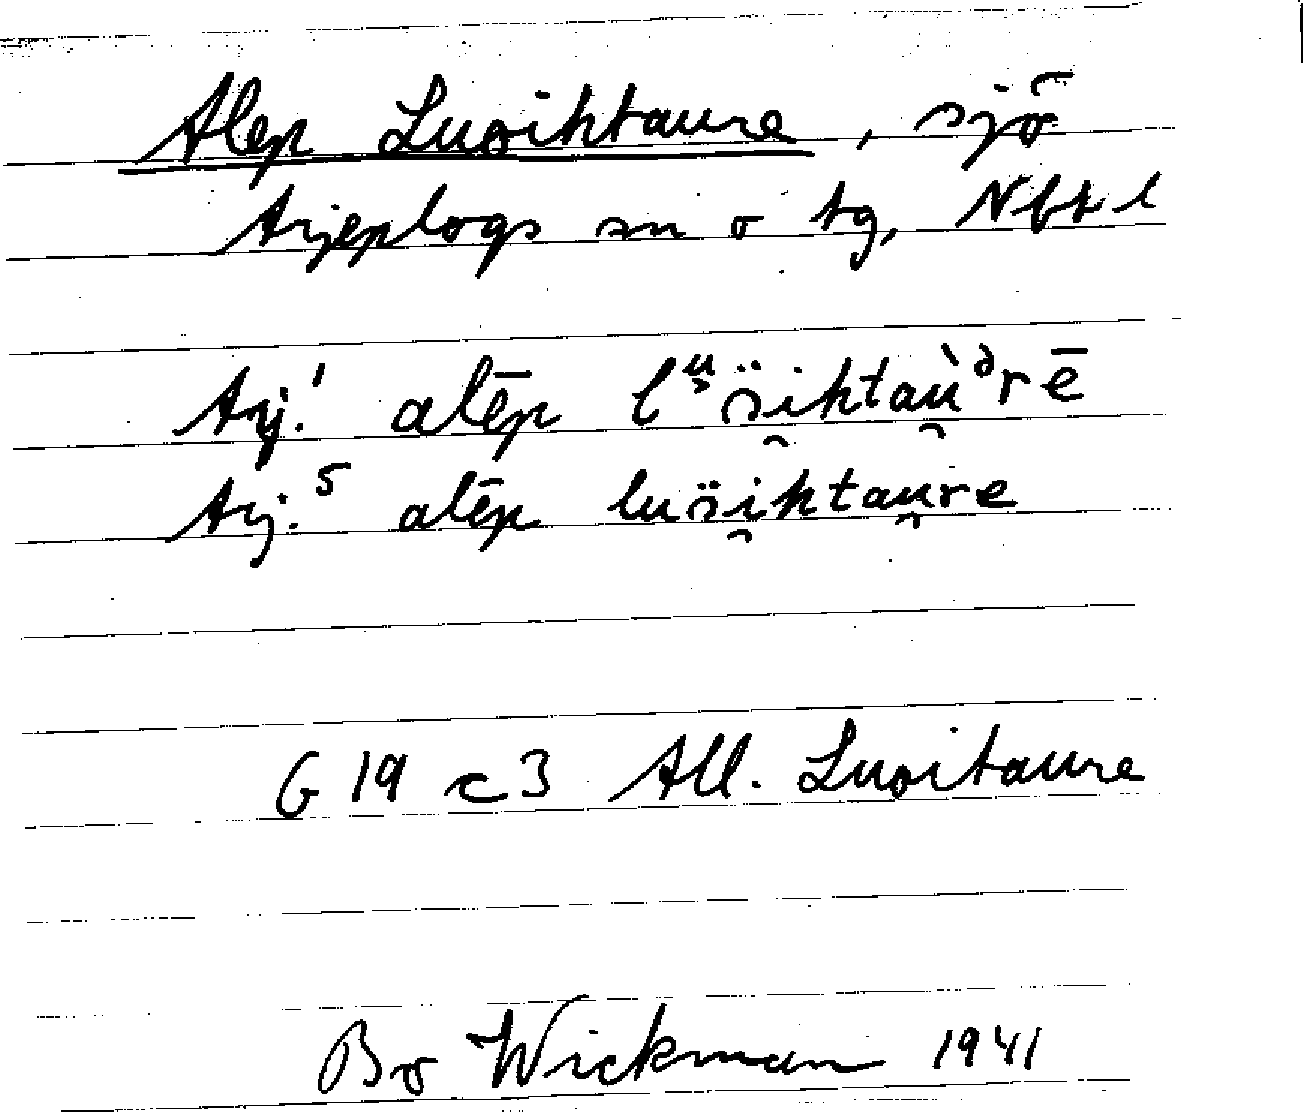 Alep Luoihtaure, sjö
Arjeplogs sn o tg, Nbt l
Arj.¹ alēp lᵘ̯öi̯htaù̯ᵊrē
Arj.⁵ alēp luöi̯htau̯re
G 19 c 3 All. Luoitaure
Bo Wickman 1941